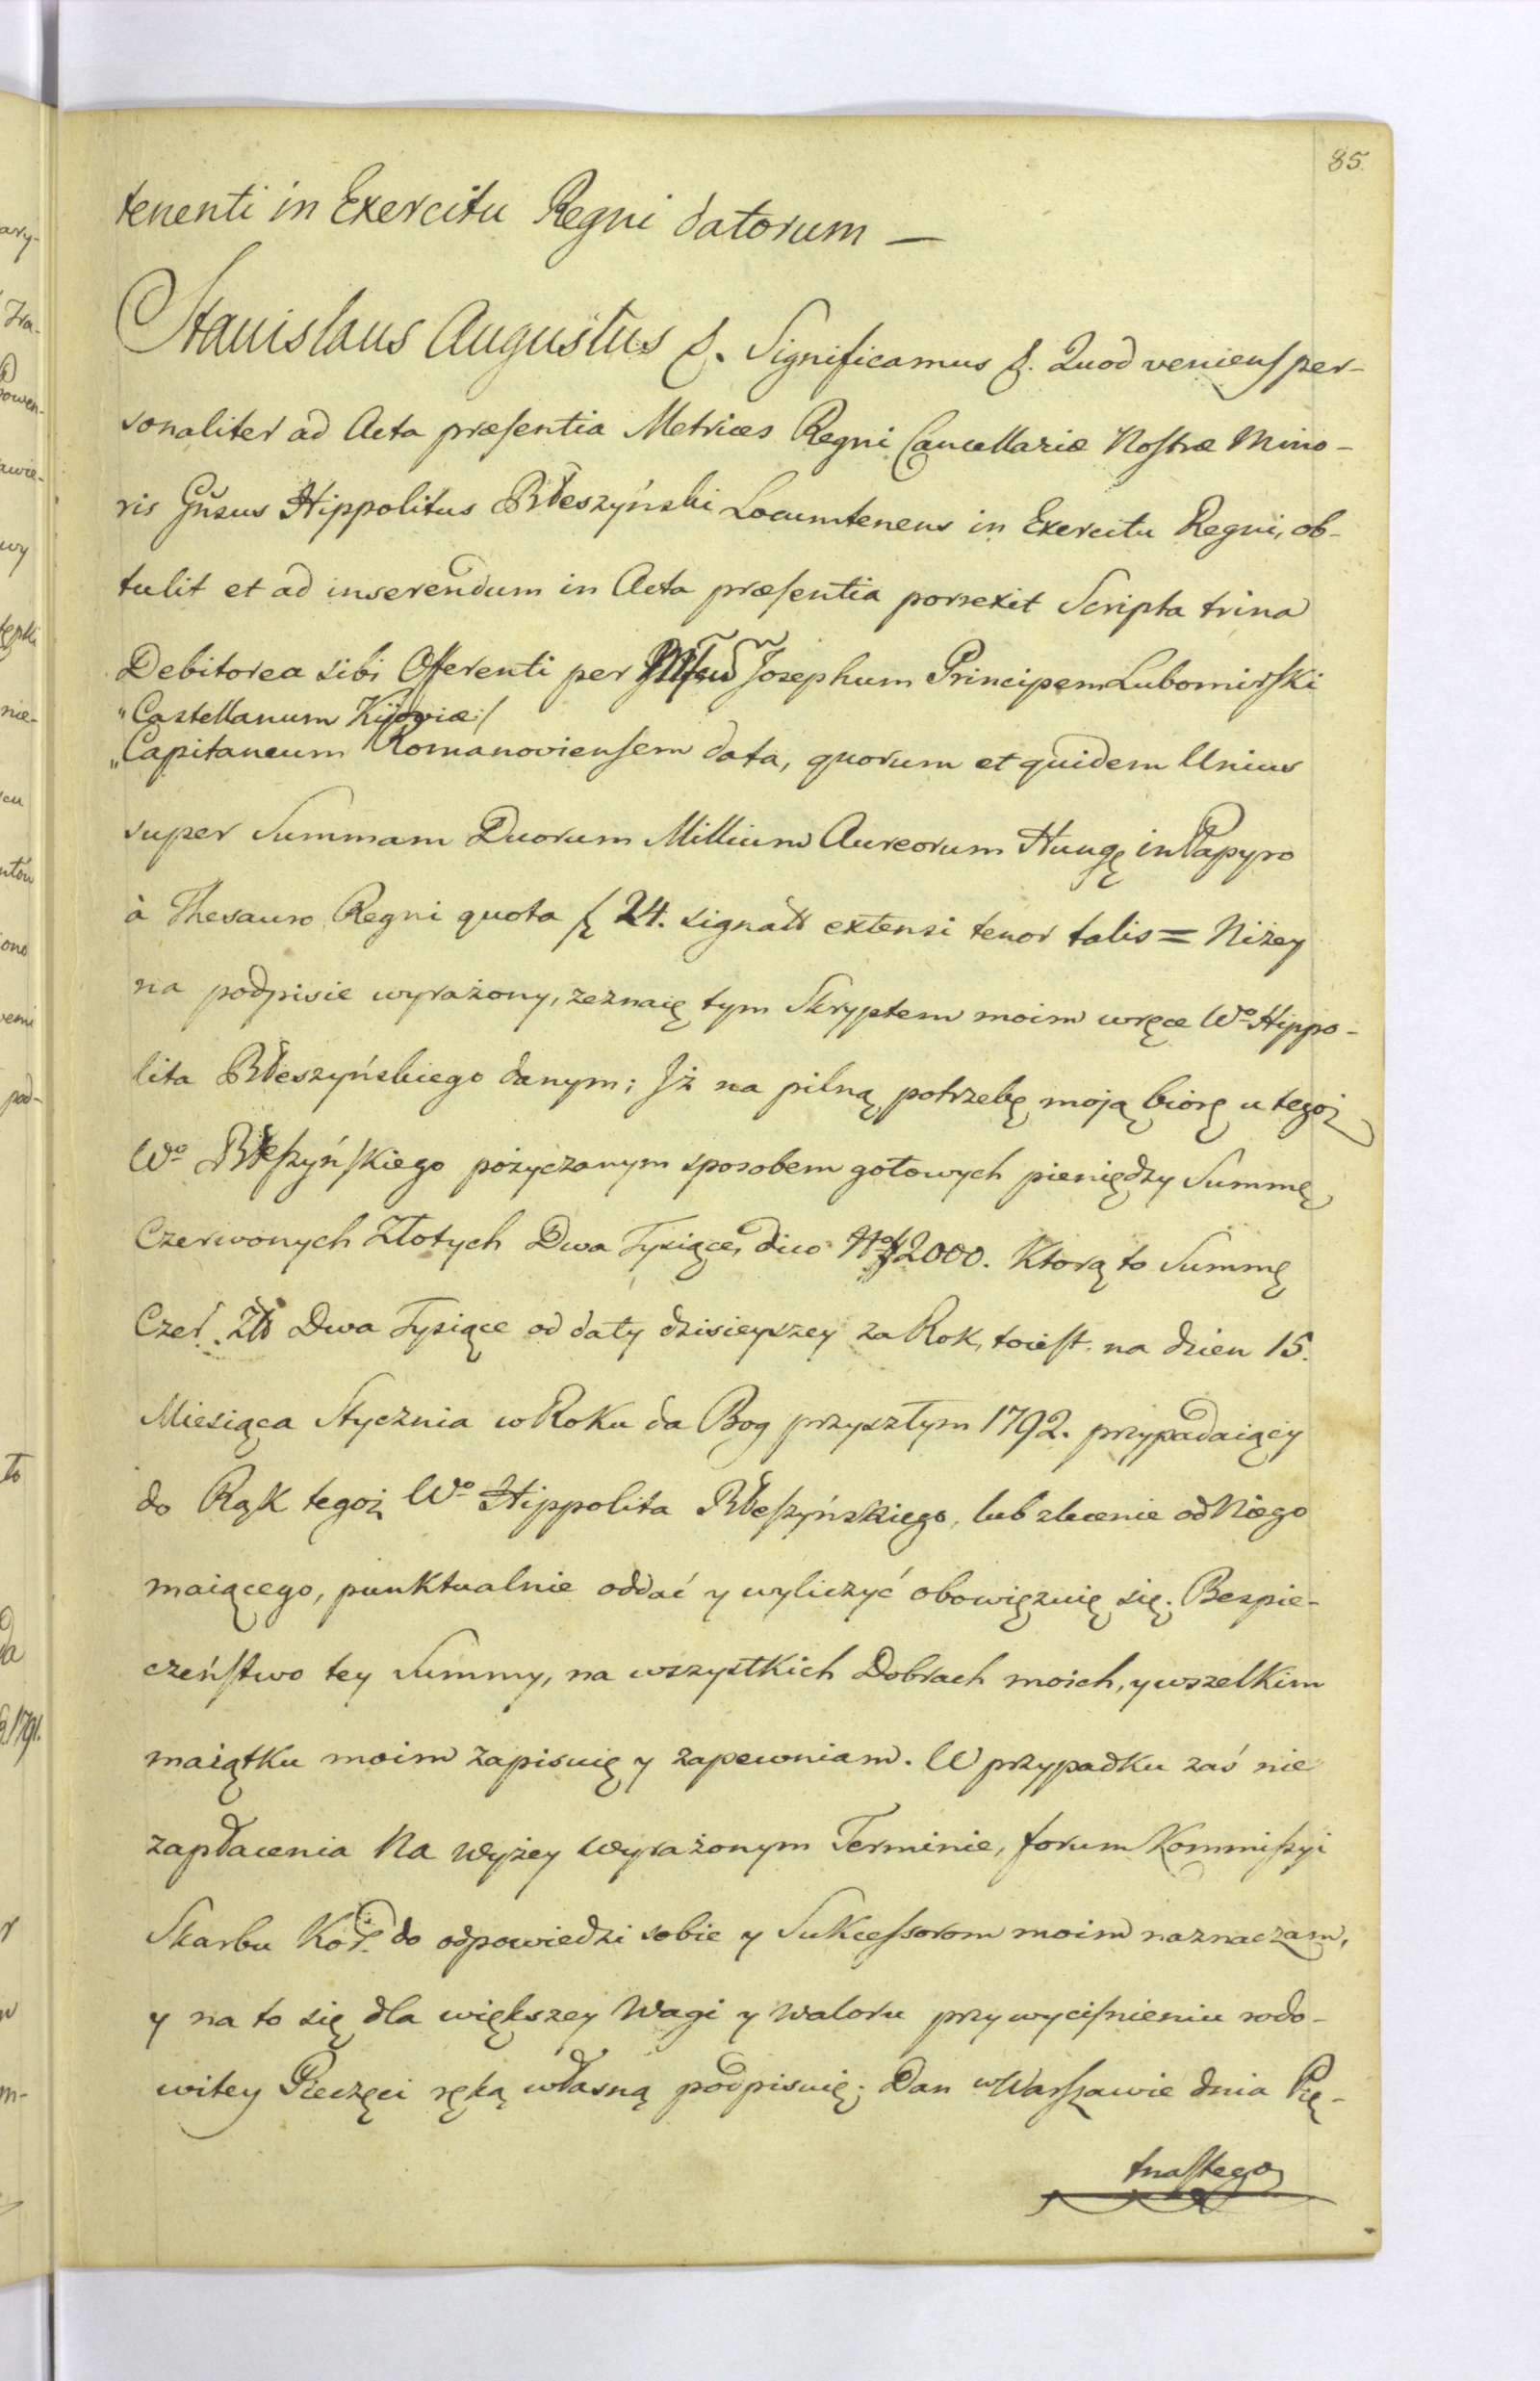 85.
tenenti in Exercitu Regni datorum —
Stanislaus Augustus &. Significamus &. Quod veniens per-
sonaliter ad Acta præsentia Metrices Regni Cancellariæ Nostræ Mino-
ris Gnsus Hippolitus Błeszyński Locumtenens in Exercitu Regni, ob-
tulit et ad inserendum in Acta præsentia porrexit Scripta trina
Debitorea sibi Offerenti per Josephum Principem Lubomirski
"Castellanum Kijoviæ:/
"Capitaneum Romanoviensem data, quorum et quidem Unius
super Summam Duorum Millium Aureorum Hung in Papyro
à Thesauro Regni quota 24. signatt extensi tenor talis = Niżey
na podpisie wyrażony, zeznaię tym Skryptem moim wręce Wo Hippo-
lita Błeszyńskiego danym; Iż na pilną potrzebę moją biorę u tegoż
Wo Błeszyńskiego pożyczanym sposobem gotowych pieniędzy Summę
Czerwonych Złotych Dwa Tysiące, dico 2000. Ktorą to Summę
Czer. Złł Dwa Tysiące od daty dzisieyszey za Rok, toiest na dzien 15.
Miesiąca Stycznia w Roku da Bog przyszłym 1792. przypadaiący
do Rąk tegoż Wo Hippolita Błeszyńskiego, lub zlecenie od Niego
maiącego, punktualnie oddać y wyliczyć obowięzuię się. Bespie-
czeństwo tey Summy, na wszystkich Dobrach moich, y wszelkim
maiątku moim zapisuię y zapewniam. W przypadku zaś nie
zapłacenia Na wyżey wyrażonym Terminie, forum Kommissyi
Skarbu Kor. do odpowiedzi sobie y Sukcessorom moim naznaczam,
y na to się dla większey Wagi y waloru przy wyciśnieniu rodo-
witey Pieczęci ręką własną podpisuię. Dan w Warszawie dnia Pię-
tnastego